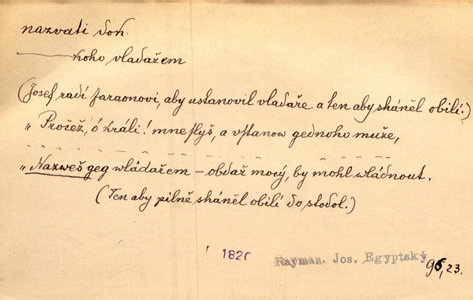 nazvati dok.
——— koho vladařem
(Josef radí faraonovi, aby ustanovil vladaře a ten aby sháněl obilí:)
„Prošež, ó králi! mne slyš, a vstanow gednoho muže,
„Nazweš geg wládařem – obdař mocý, by mohl wládnout.
(Ten aby pilně sháněl obilí do stodol.)
1820
Rayman. Jos. Egyptský
96, 23.